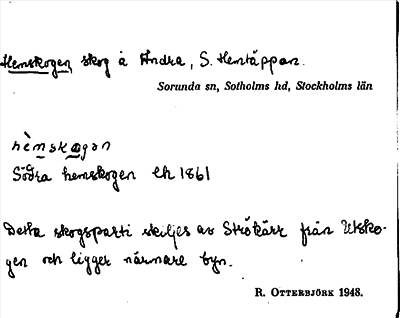 Hemskogen, skog å Ändra, S. Hemtäppan.
Sorunda sn, Sotholms hd, Stockholms län
hèmskogan
Södra hemskogen Ek 1861
Detta skogsparti skiljes av Strökärr från Utsko-
gen och ligger närmare byn.
R. OTTERBJÖRK 1948.